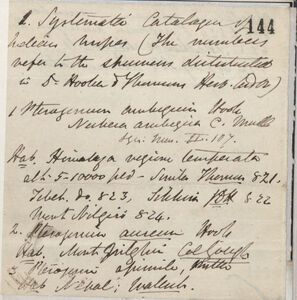 2. Systematic Catalogue of
144
Indian mosses (The numbers
refer to the specimens distributed
in Dr Hooker & Thomson Herb. Ind. Or.)
1 Pterogonium ambiguum Hook
Neckera ambigua C. Mull
Syn. Mus. II. 107.
Hab. Himalaya regione temperata
alt. 5-10000 ped - Simla Thomson 821.
Tibet. do. 823, Sikkim JDH 822
Mont Nilgiri 824.
2. Pterogonium aureum Hook
Hab. Mont Nilghiri Col Gough
3 Pterogoni
Hab Nepal; Wallich.